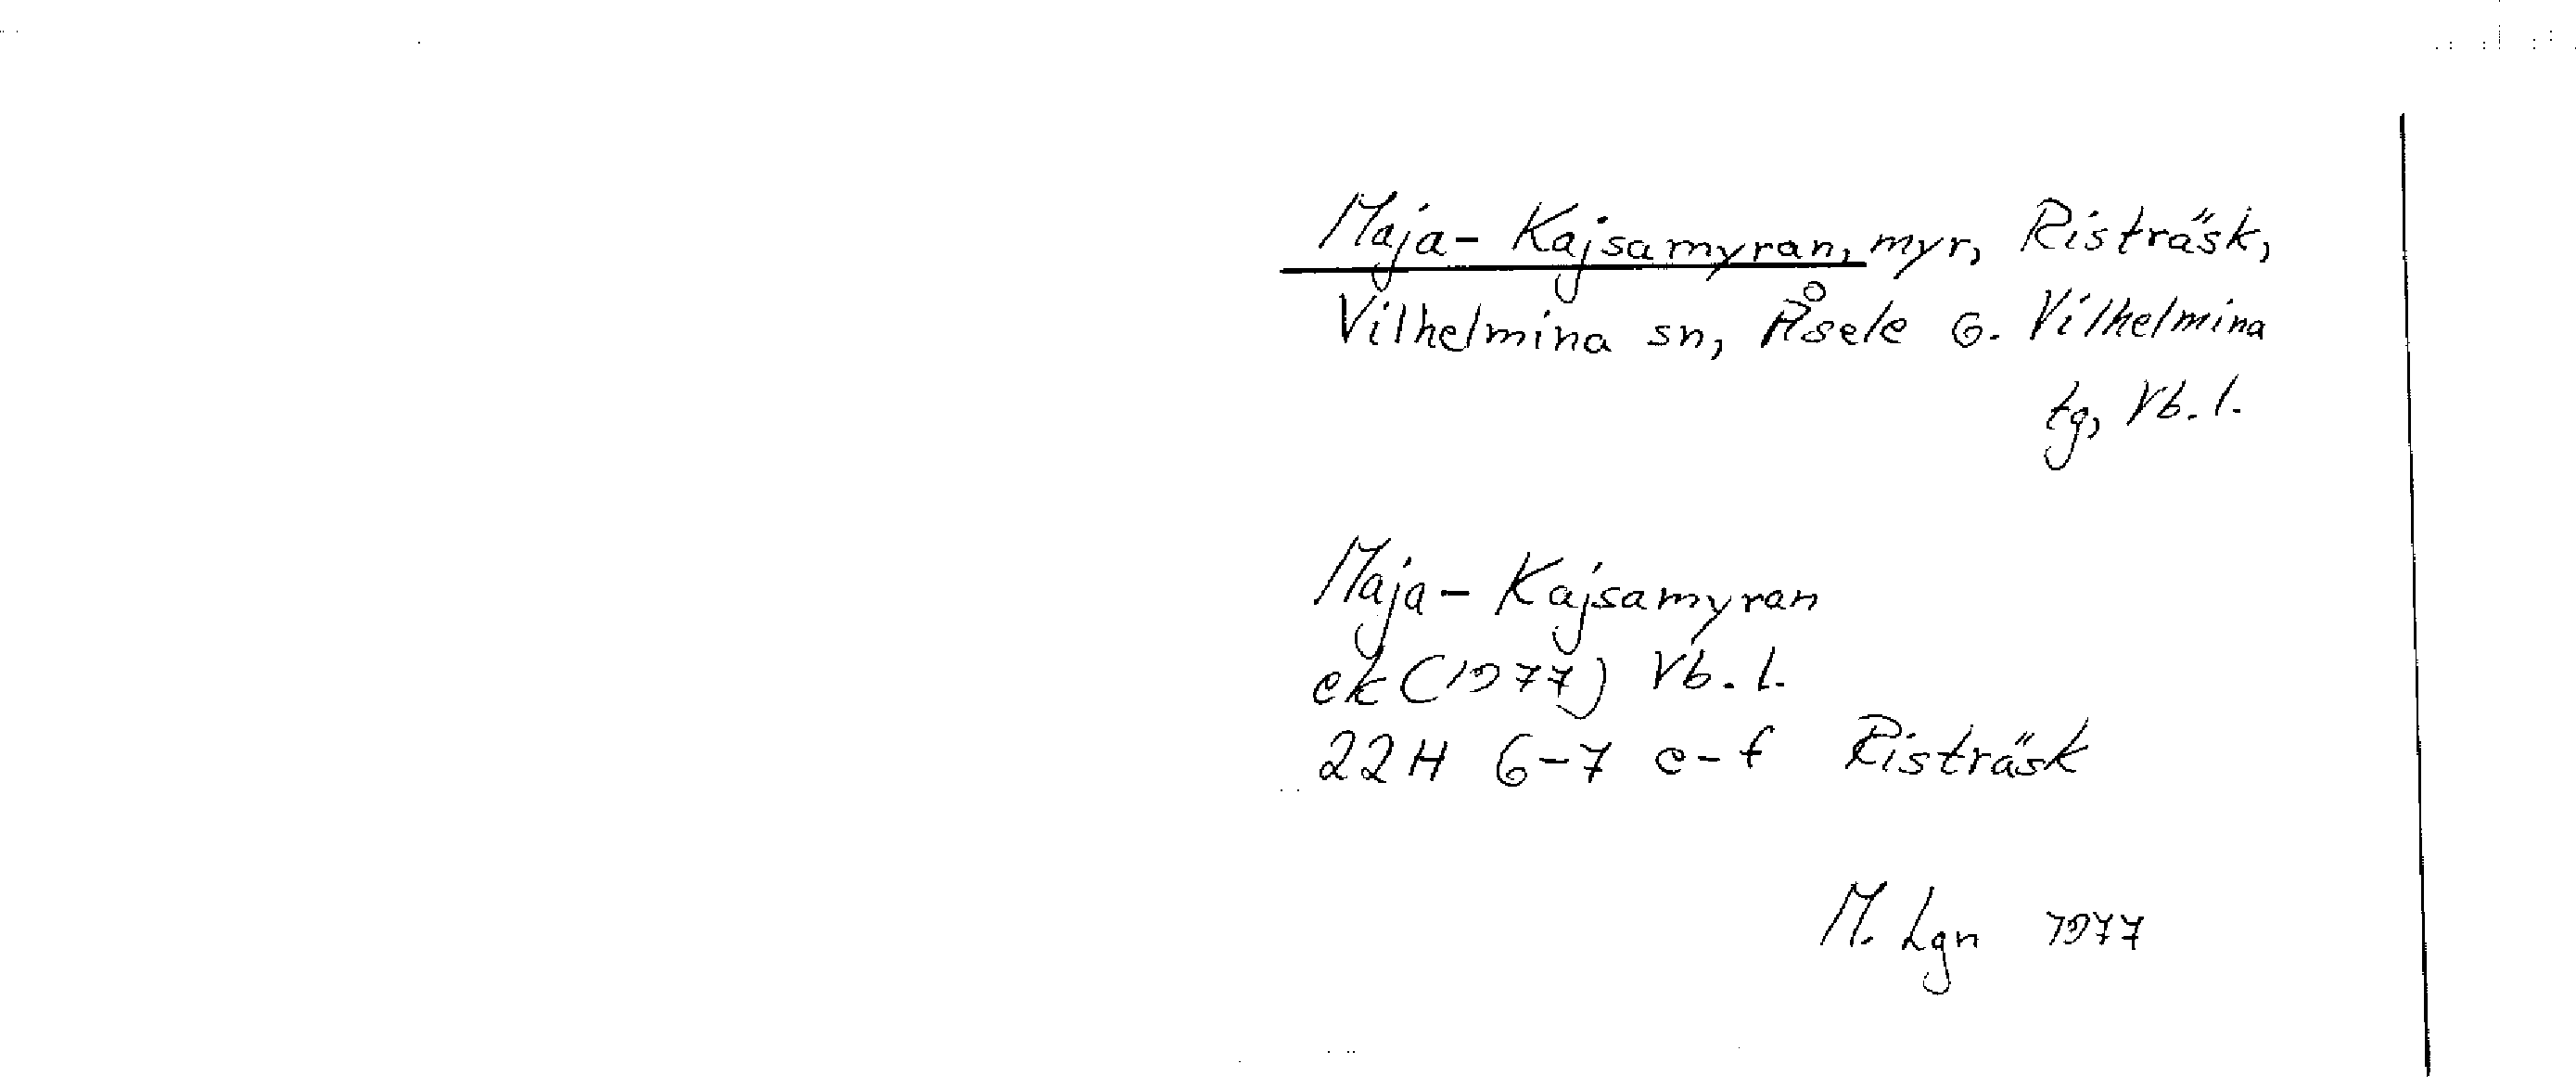 Maja-Kajsamyran, myr, Risträsk,
Vilhelmina sn, Åsele o. Vilhelmina
tg, Vb. l.
Maja-Kajsamyran
ek (1977) Vb. l.
22H 6-7 e-f Risträsk
M. Lgn 1977